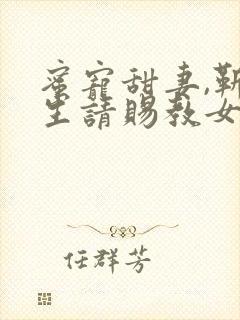 蜜寵甜妻,靳
生請賜教女
任群芳